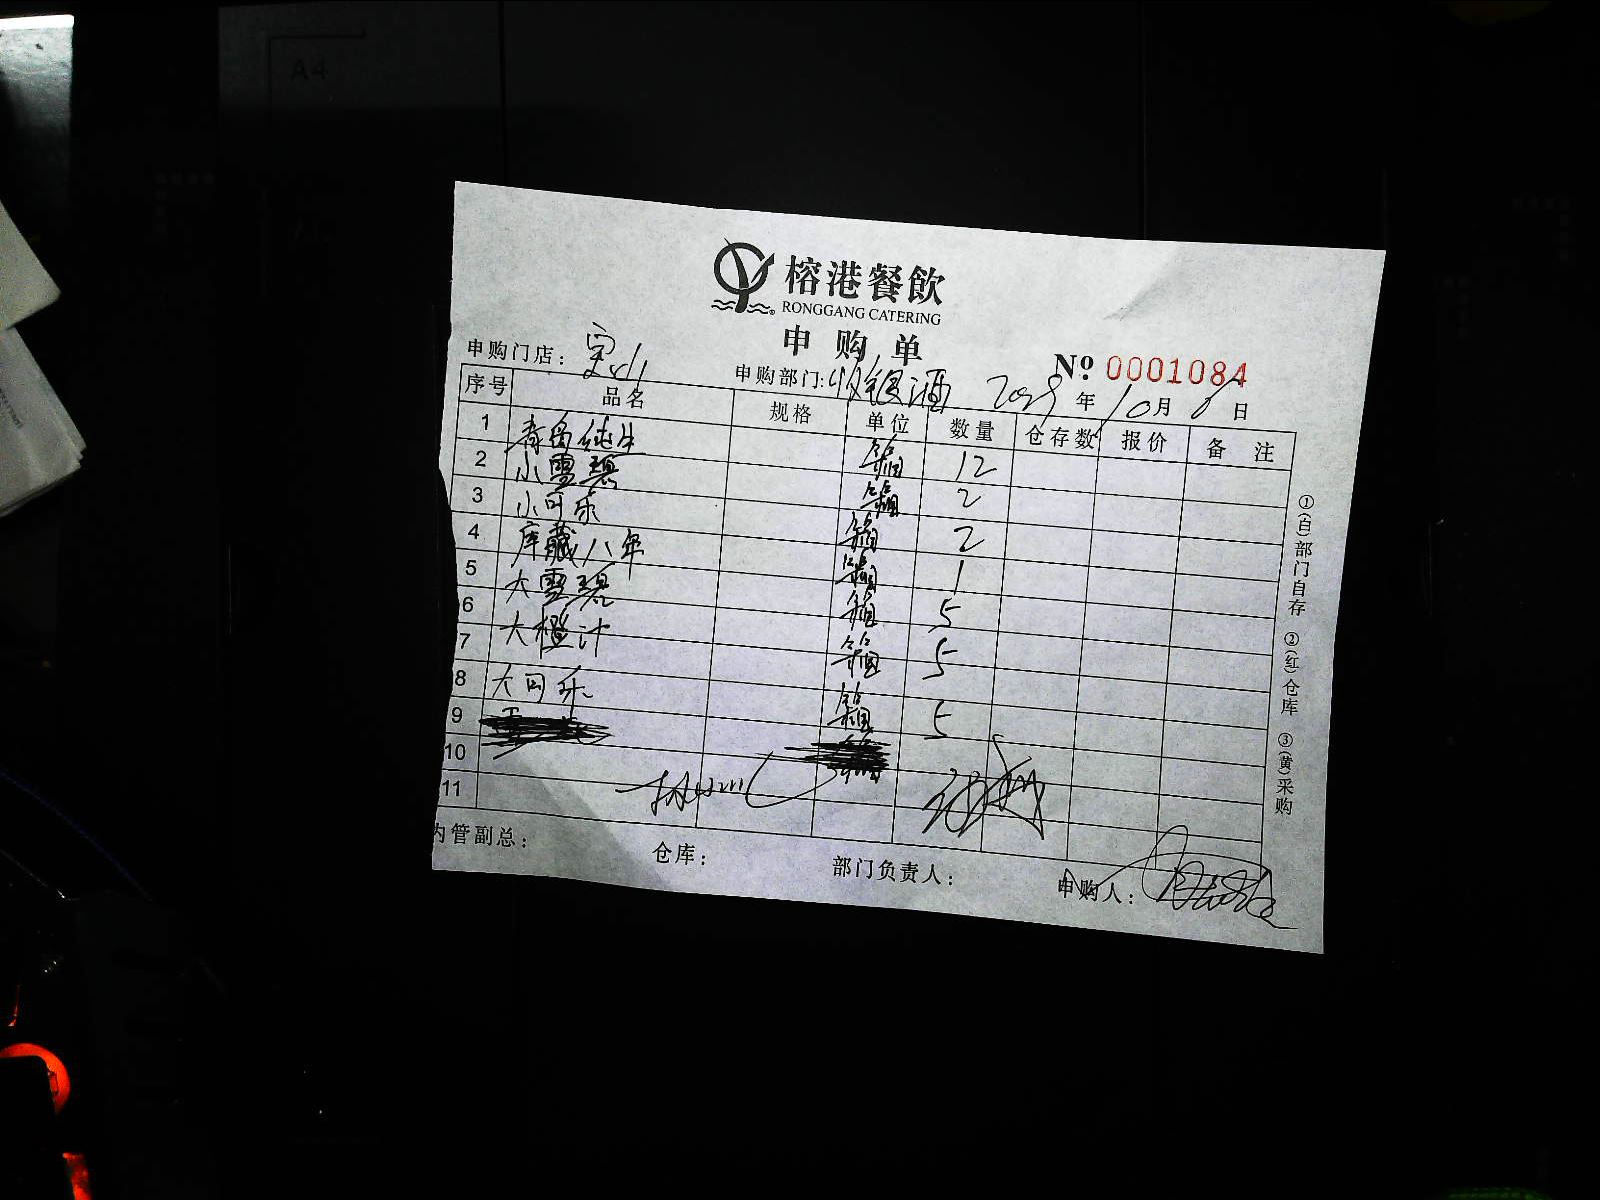 A4
榕港餐飲
RONGGANG CATERING
申购单
№ 0001084
申购门店：
申购部门: 收银酒 年 10 月 8 日
序号 品名 规格 单位 数量 仓存数 报价 备注
1 青岛纯生 箱 12
2 小雪碧 箱 2
3 小可乐 箱 2
4 库藏八年 箱 1
5 大雪碧 箱 5
6 大橙汁 箱 5
7
8 大可乐 箱 5
9
10
11
内管副总： 仓库： 部门负责人： 申购人：
①(白)部门自存 ②(红)仓库 ③(黄)采购